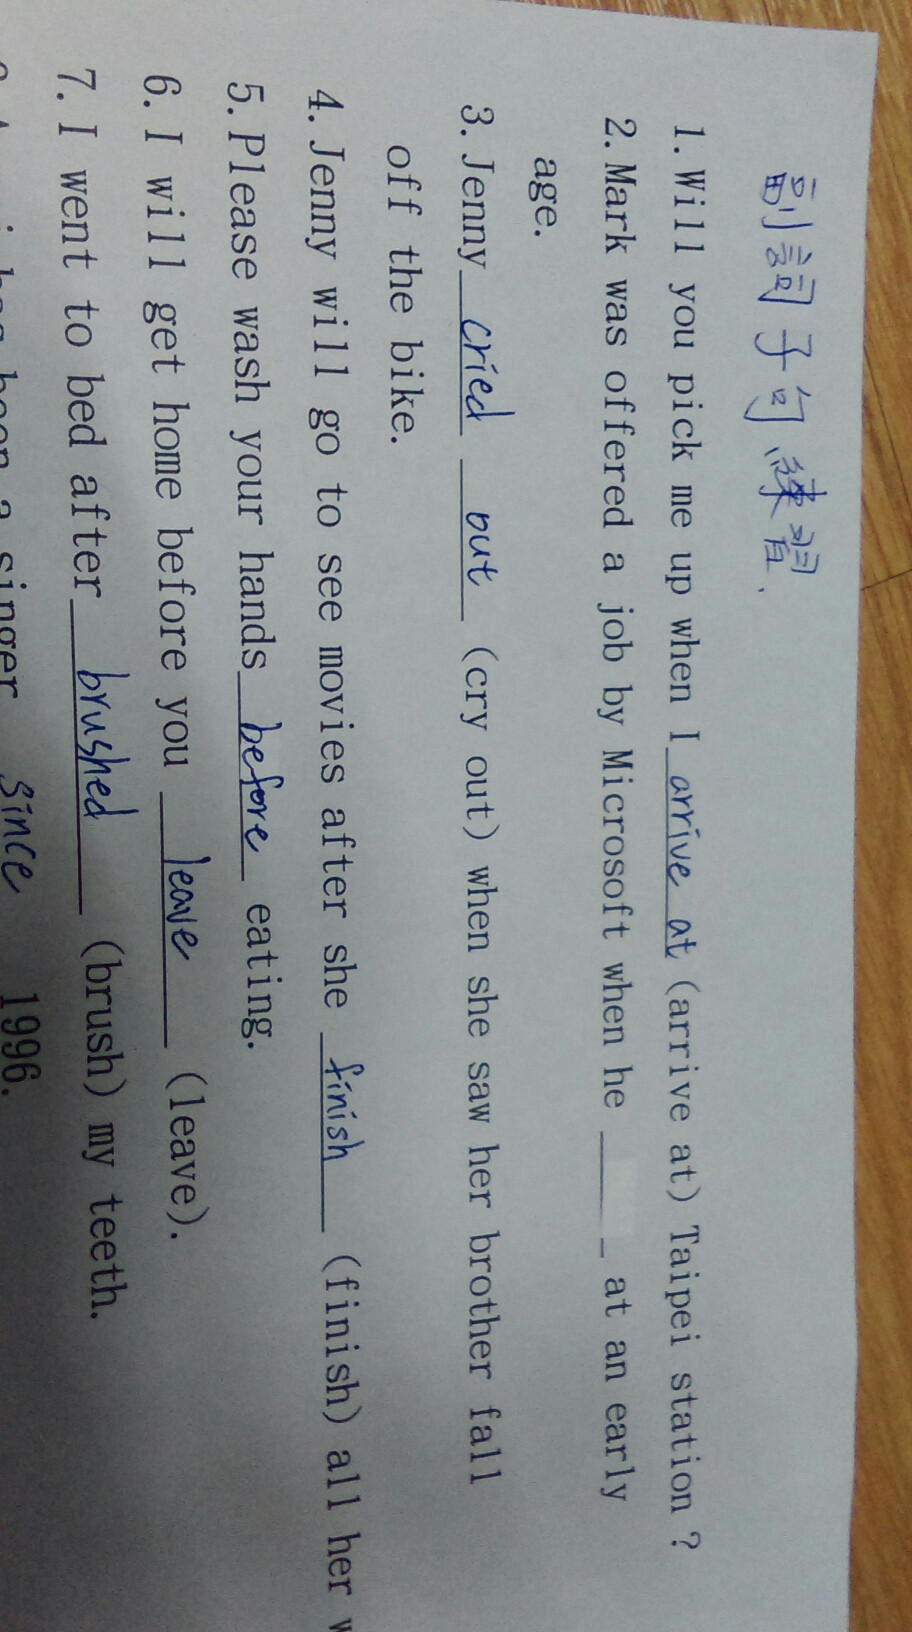 副詞子句練習.
1. Will you pick me up when I arrive at (arrive at) Taipei station?
2. Mark was offered a job by Microsoft when he ____ at an early
age.
3. Jenny cried out (cry out) when she saw her brother fall
off the bike.
4. Jenny will go to see movies after she finish (finish) all her
5. Please wash your hands before eating.
6. I will get home before you leave (leave).
7. I went to bed after brushed (brush) my teeth.
has been a singer since 1996.